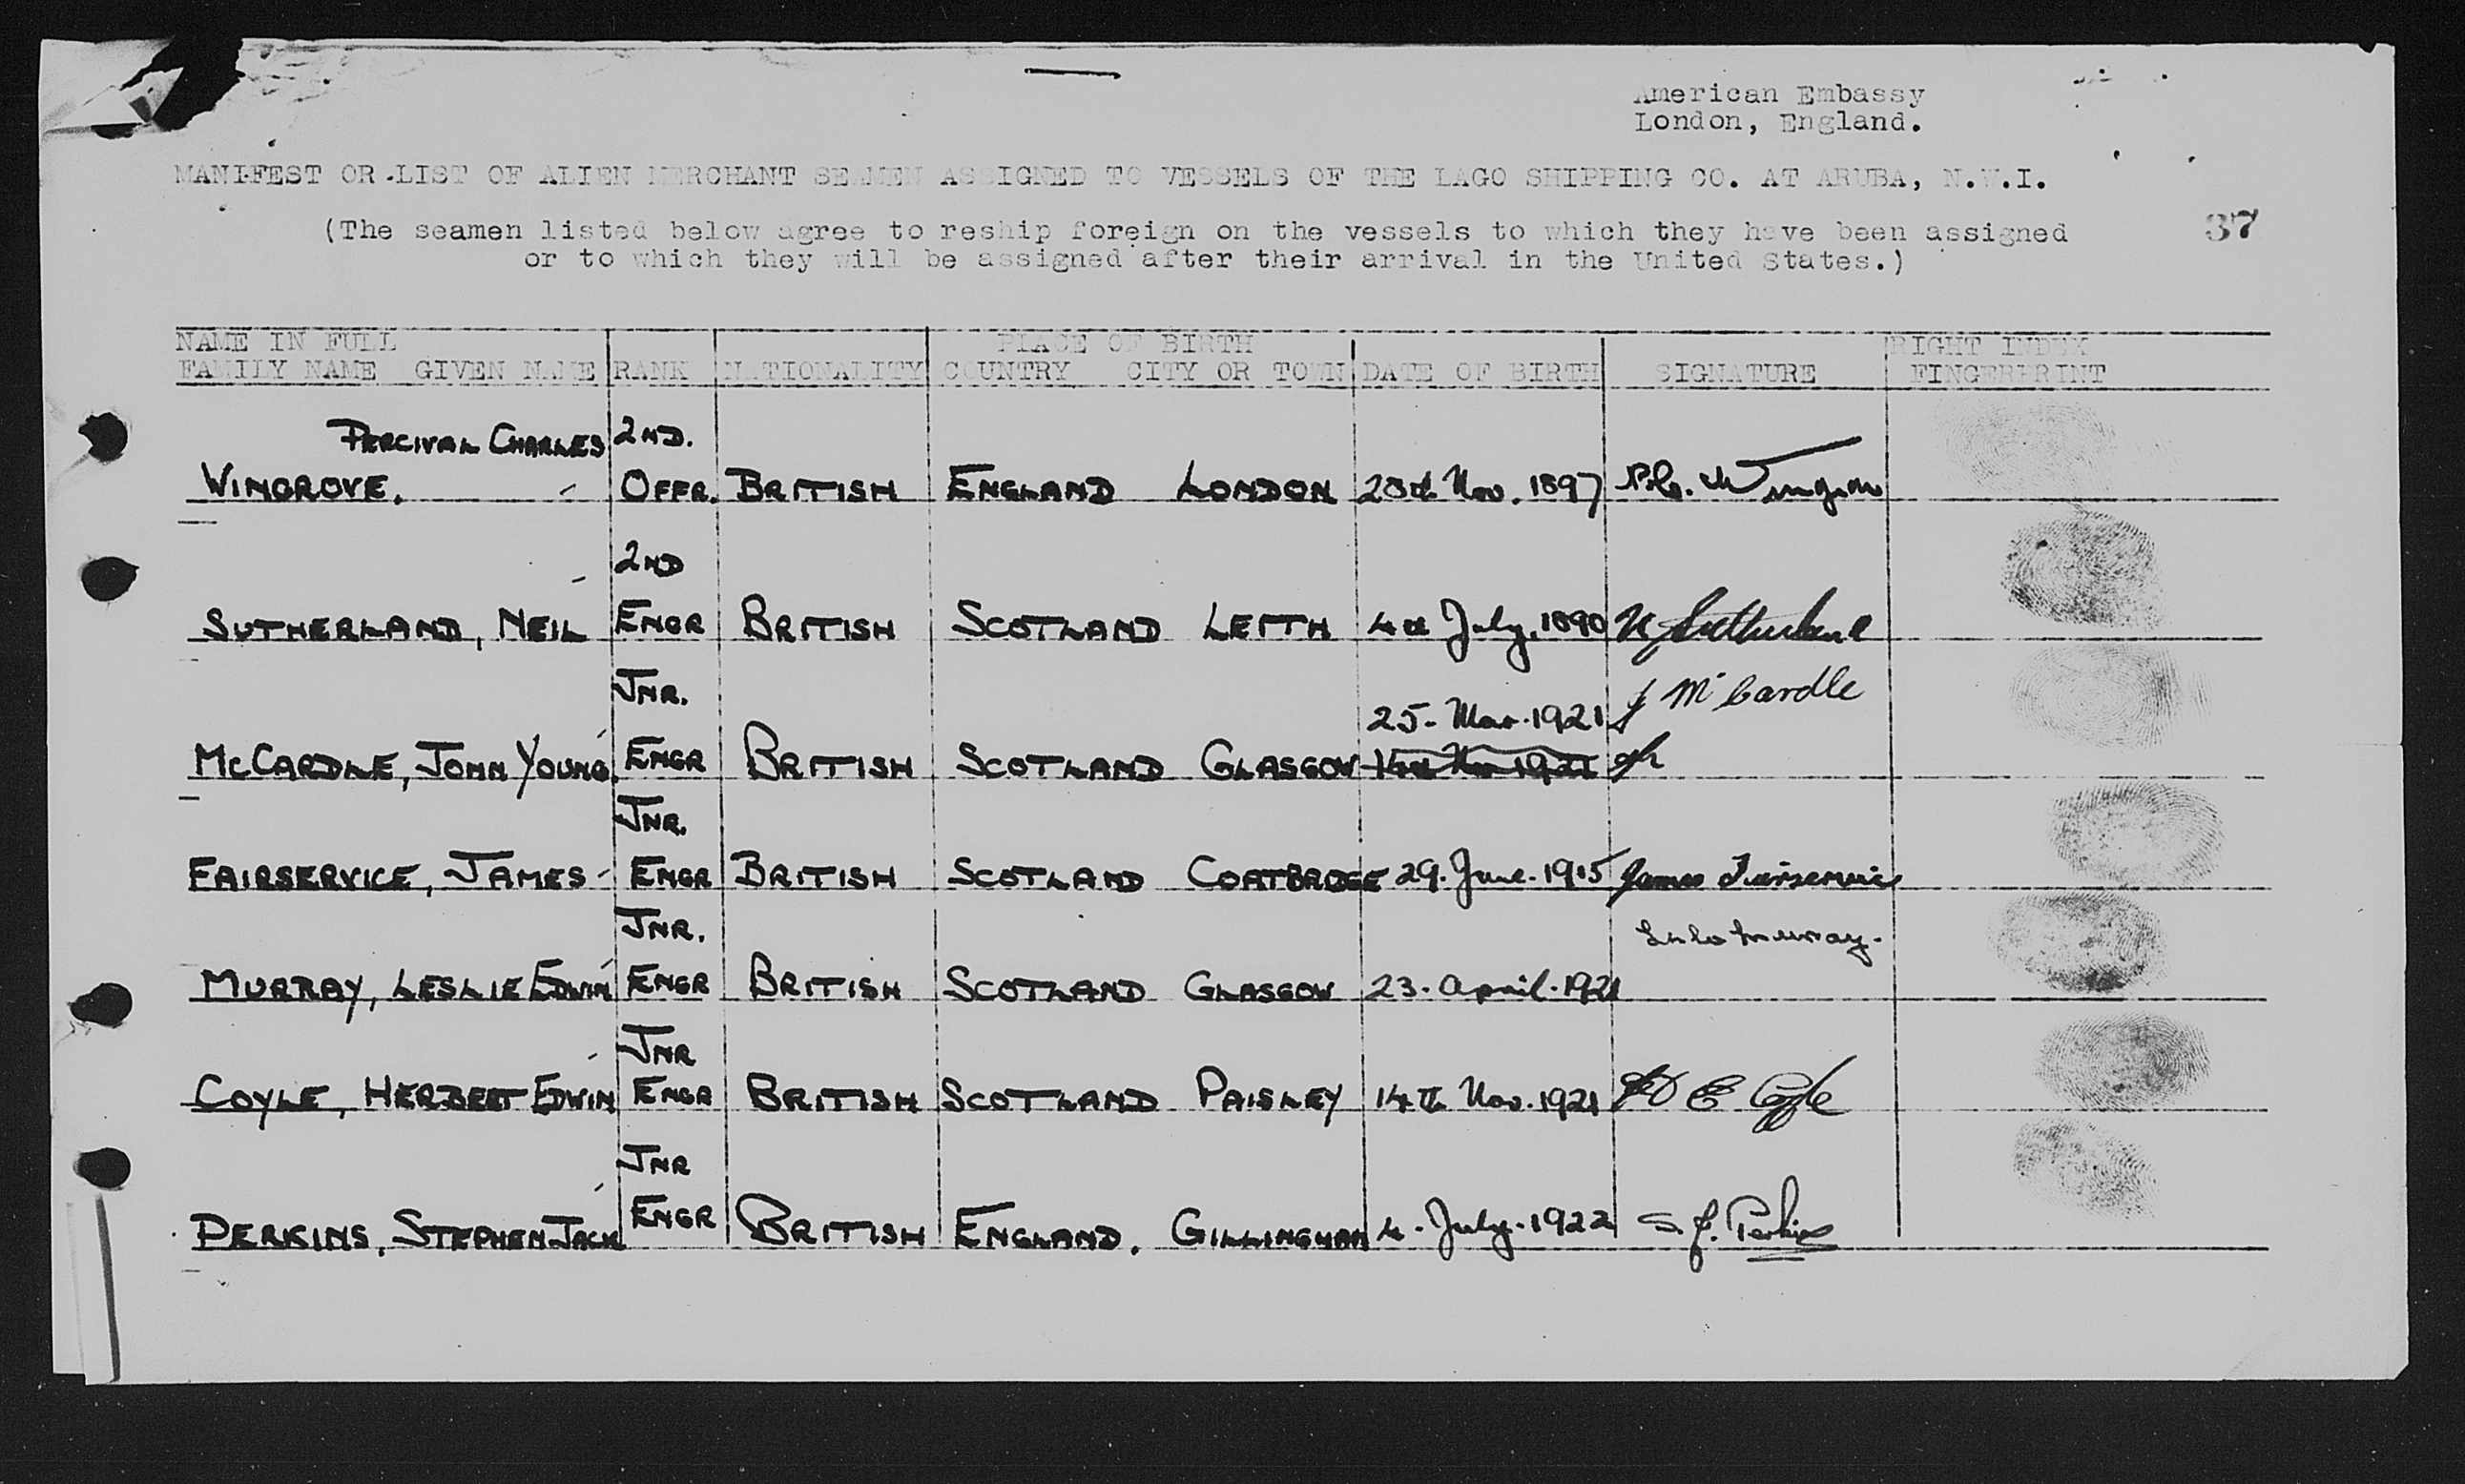 American Embassy
London, England.
MANIFEST OR LIST OF ALIEN MERCHANT SEAMEN ASSIGNED TO VESSELS OF THE LAGO SHIPPING CO. AT ARUBA, N.W.I.
(The seamen listed below agree to reship foreign on the vessels to which they have been assigned 37
or to which they will be assigned after their arrival in the United States.)
NAME IN FULL PLACE OF BIRTH RIGHT INDEX
FAMILY NAME GIVEN NAME RANK NATIONALITY COUNTRY CITY OR TOWN DATE OF BIRTH SIGNATURE FINGERPRINT
PERCIVAL CHARLES 2ND.
WINGROVE. OFFR. BRITISH ENGLAND LONDON 28th Nov. 1897 P.C. Wingrove
2ND
SUTHERLAND, NEIL ENGR BRITISH SCOTLAND LEITH 4th July. 1890 N Sutherland
JNR. 25. Mar. 1921 J McCardle
MCCARDLE, JOHN YOUNG. ENGR BRITISH SCOTLAND GLASGOW
JNR.
FAIRSERVICE, JAMES ENGR BRITISH SCOTLAND COATBRIDGE 29. June. 1915 James Fairservice
JNR. Murray.
MURRAY, LESLIE EDWIN ENGR BRITISH SCOTLAND GLASGOW 23. April. 1921
JNR
COYLE, HERBERT EDWIN ENGR BRITISH SCOTLAND PAISLEY 14th Nov. 1921 H E Coyle
JNR
PERKINS, STEPHEN JACK ENGR BRITISH ENGLAND. GILLINGHAM 4. July. 1922 S. J. Perkins